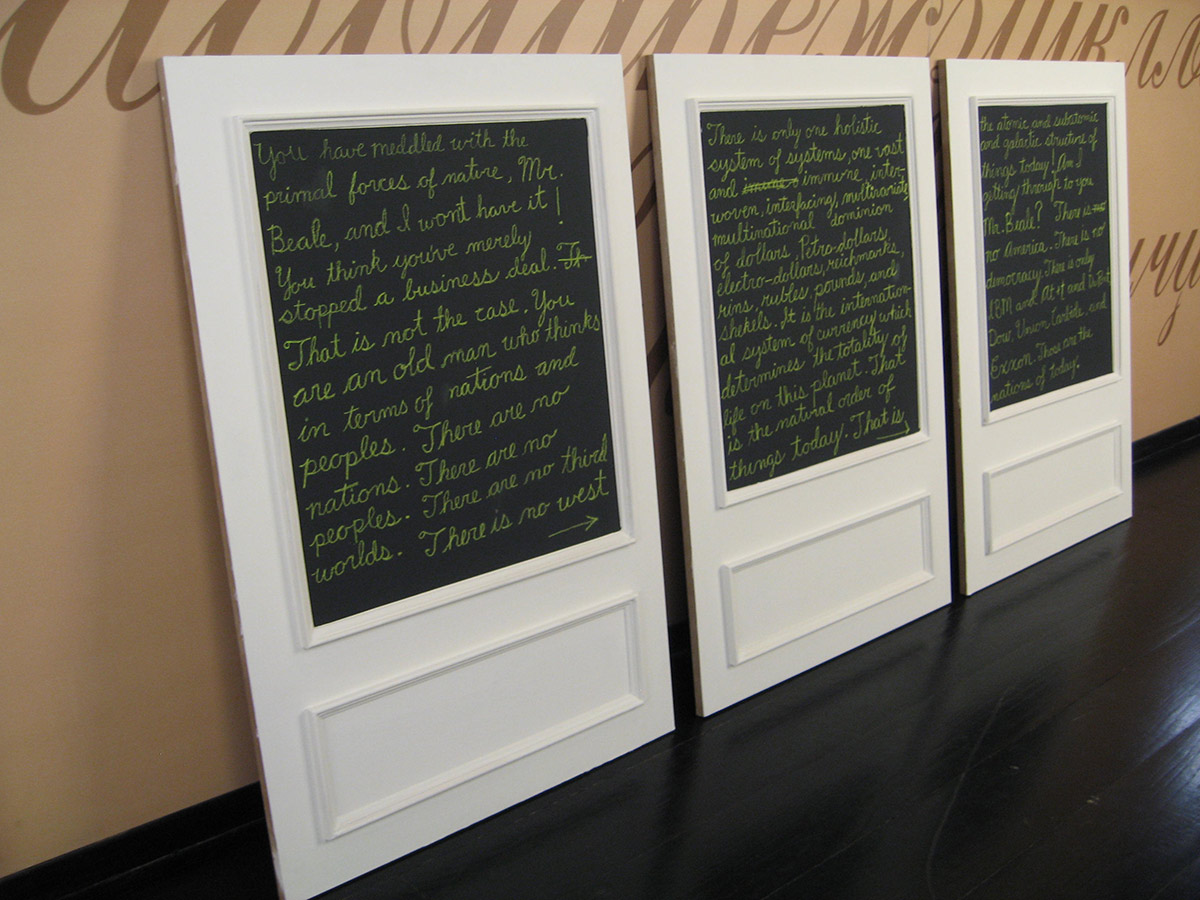 You have meddled with the
primal forces of nature, Mr.
Beale, and I won't have it!
You think you've merely
stopped a business deal. Th
That is not the case. You
are an old man who thinks
in terms of nations and
peoples. There are no
nations. There are no
peoples. There are no third
worlds. There is no west
There is only one holistic
system of systems, one vast
and immune, inter-
woven, interfacing, multivariate
multinational dominion
of dollars, Petro-dollars,
electro-dollars, reichmarks,
rins, rubles, pounds, and
shekels. It is the internation-
al system of currency which
determines the totality of
life on this planet. That
is the natural order of
things today. That is
the atomic and subatomic
and galactic structure of
things today! Am I
getting through to you
Mr. Beale? There is
no America. There is no
democracy. There is only
IBM and At&t and
Dow, Union Carbide, and
Exxon. Those are the
nations of today.